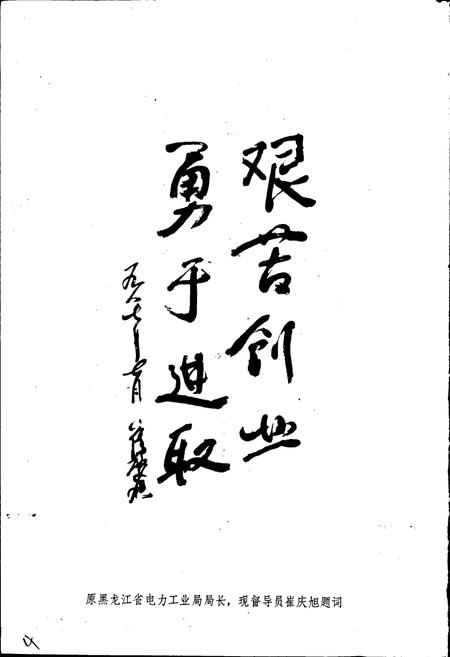 艰苦创业
勇于进取
九八七年七月 崔庆旭
原黑龙江省电力工业局局长，现督导员崔庆旭题词